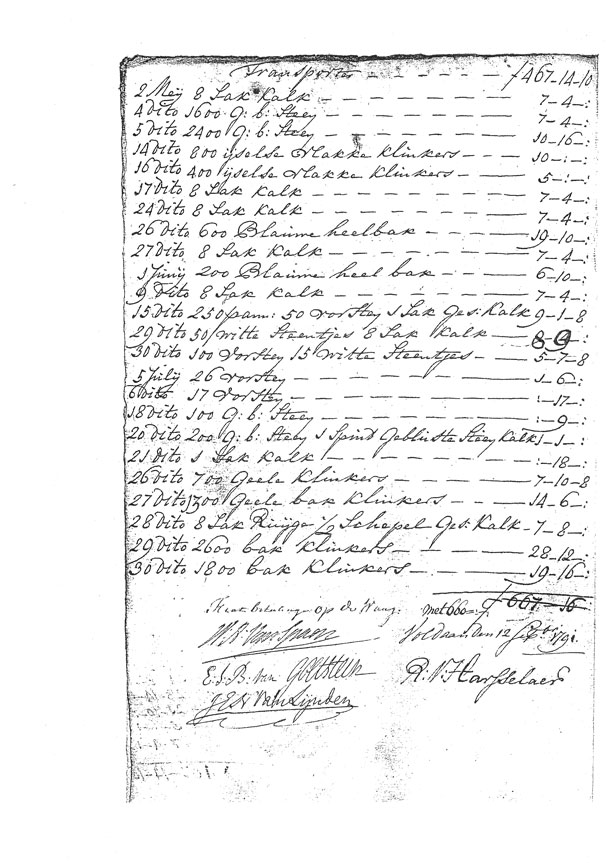 Transporte - - - - - - - f 467-14-10
2 Meij 8 Sak Kalk - - - - - - 7-4-:
4 dito 1600 G: b: Steen - - - - - 7-4-:
5 dito 2400 G: b: Steen - - - - - 10-16-:
14 dito 800 ijselse vlakke Klinkers - - - 10-:-:
16 dito 400 ijselse vlakke Klinkers - - - 5-:-:
17 dito 8 Sak Kalk - - - - - - 7-4-:
24 dito 8 Sak Kalk - - - - - - 7-4-:
26 dito 600 Blauwe heelbak - - - - 19-10-:
27 dito 8 Sak Kalk - - - - - - 7-4-:
1 Junij 200 Blauwe heel bak - - - - 6-10-:
9 dito 8 Sak Kalk - - - - - 7-4-:
15 dito 250 pann: 50 vorsten 1 Sak Ges: Kalk 9-1-8
29 dito 50 witte Steentjes 8 Sak Kalk - 8-9-:
30 dito 100 Vorsten 15 witte Steentjes - - 5-7-8
5 Julij 26 vorsten - - - - - - 1-6-:
6 dito 17 vorsten - - - - - - :-17-:
18 dito 100 G: b: Steen - - - - - :-9-:
20 dito 200 G: b: Steen 1 Spint Gebluste Steen Kalk 1-1-:
21 dito 1 Sak Kalk - - - - - - :-18-:
26 dito 700 Geele Klinkers - - - - 7-10-8
27 dito 1300 Geele bak Klinkers - - - 14-6-:
28 dito 8 Sak Ruijge 1/2 Schepel Ges: Kalk - 7-8-:
29 dito 2600 bak Klinkers - - - - 28-12-:
30 dito 1800 bak Klinkers - - - - 19-16-:
f 667-16-
op de met 660-:
Voldaan den 12 Sept: 1791
W. A: Van Spaen
E. S. B. van Goltstein R: V: Harsselaer
J E N Van Lijnden